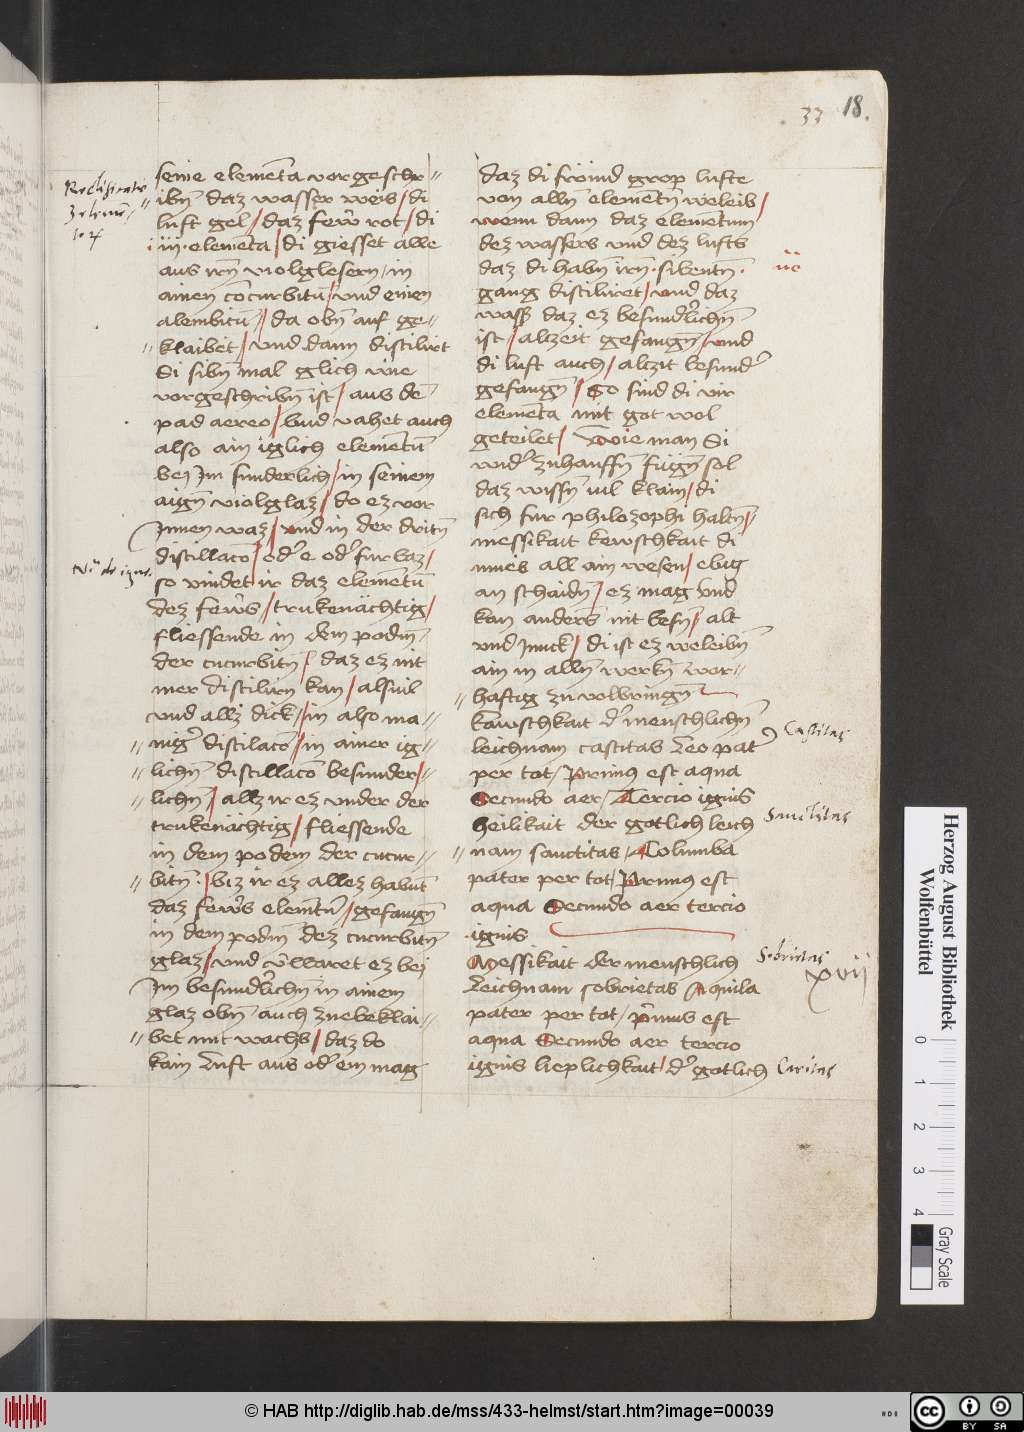 33 18.
seine elemēta vorgeschr//
ibn̄ daz wasser weis / di
luft gel / daz fewr̄ rot / di
iii·elemēta / di giesset alle
aus irn̄ violglesern / in
ainen cōcurbitū / und einen
alembitū // da obn̄ auf ge//
klaibet / und dann distilirt
Si sibn̄ mal glich wie
vorgeschribn̄ ist / aus dē
pad aereo / vnd vahet auch
also ain iglich elemētū
bei Im sunderlich / in seinem
aign̄ violglaz / do ez vor
Innen waz / und in der dritn̄
distillaco / od' e od' furbaz /
so vindet ir daz elemētū
dez fewr̄s / trukenächtig /
fliessende in dem podm̄
der cucurbitn̄ / daz ez nit
mer distilirn kan / alsuil
vnd allz dick / in also ma//
nig' distilacō / in ainer ig//
lichn̄ distillacō besunder //
lichn̄ / allz ir ez vnder der
trukenächtig / fliessende
in dem podem der cucur//
bitn̄ · / biz ir ez allez habnt̄
daz fewr̄s elemtū / gefangn̄
in dem podm̄ dez cucurbitn̄
glaz / und v̄waret ez bei
Im besund'lichn̄ in ainem
glaz obn̄ auch zuebeklai//
bet mit wachs / daz do
kain luft aus od' ein mag
daz di froiind grop lufte
von alln̄ elementn̄ weleib /
wenn dann daz elementum
dez wassers vnd dez lufts
daz di habn̄ irn̄ · sibentn̄ ·
gang distiliret / vnd daz
wass' daz ez besund'lichn̄
ist / alzeit gefangn̄ / vnd
di luft auch / alzit besund'
gefangn̄ / So sind di vir
elemēta mit got wol
geteilet / Wie man Si
vnd' zuhauffn̄ fügn̄ sol
daz wissn̄ uil klain / di
sich fur philozophi haltn̄ /
messikait kewschkait di
mues all ain wesen / ebug
an schaidn̄ / ez mag vnd
kan anders nit besn̄ / alt
vnd Junck / di ist ez weleibn̄
ain in alln̄ werkn̄ wor//
haftig zu volbringn̄
kawschkait d' menschlichn̄
leichnam castitas Leo pat'
per tot / Primus est aqua
Secundo aer / Tercio ignis
Heilikait der gotlich leich
nam sanctitas / Columba
pater per tot / Primus est
aqua Secundo aer tercio
ignis
Messikait der menschlich
Leichnam sobrietas Aquila
pater per tot / prīmus est
aqua Secundo aer tercio
ignis lieplichkait / d' gotlich
Castitas
Sanctitas
Sobrietas
xvij
Caritas
Herzog August Bibliothek
Wolfenbüttel
0 1 2 3 4
Gray Scale
© HAB http://diglib.hab.de/mss/433-helmst/start.htm?image=00039
HAB
cc BY SA